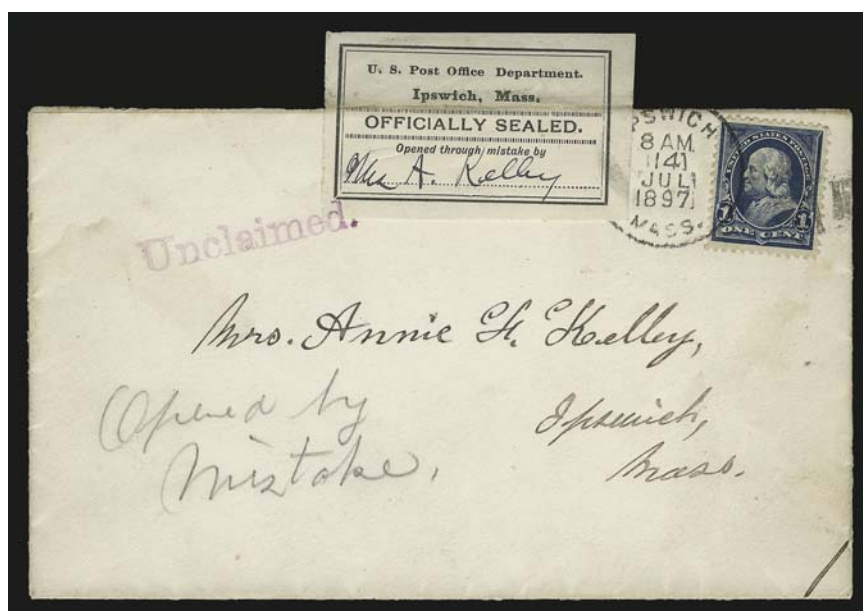 U. S. Post Office Department.
Ipswich, Mass.
OFFICIALLY SEALED.
Opened through mistake by
Mrs A. Kelley
IPSWICH
8 AM
14
JUL
1897
MASS.
UNITED STATES POSTAGE
1 1
ONE CENT
Unclaimed.
Mrs. Annie H. Kelley,
Opened by
Mistake.
Ipswich,
Mass.